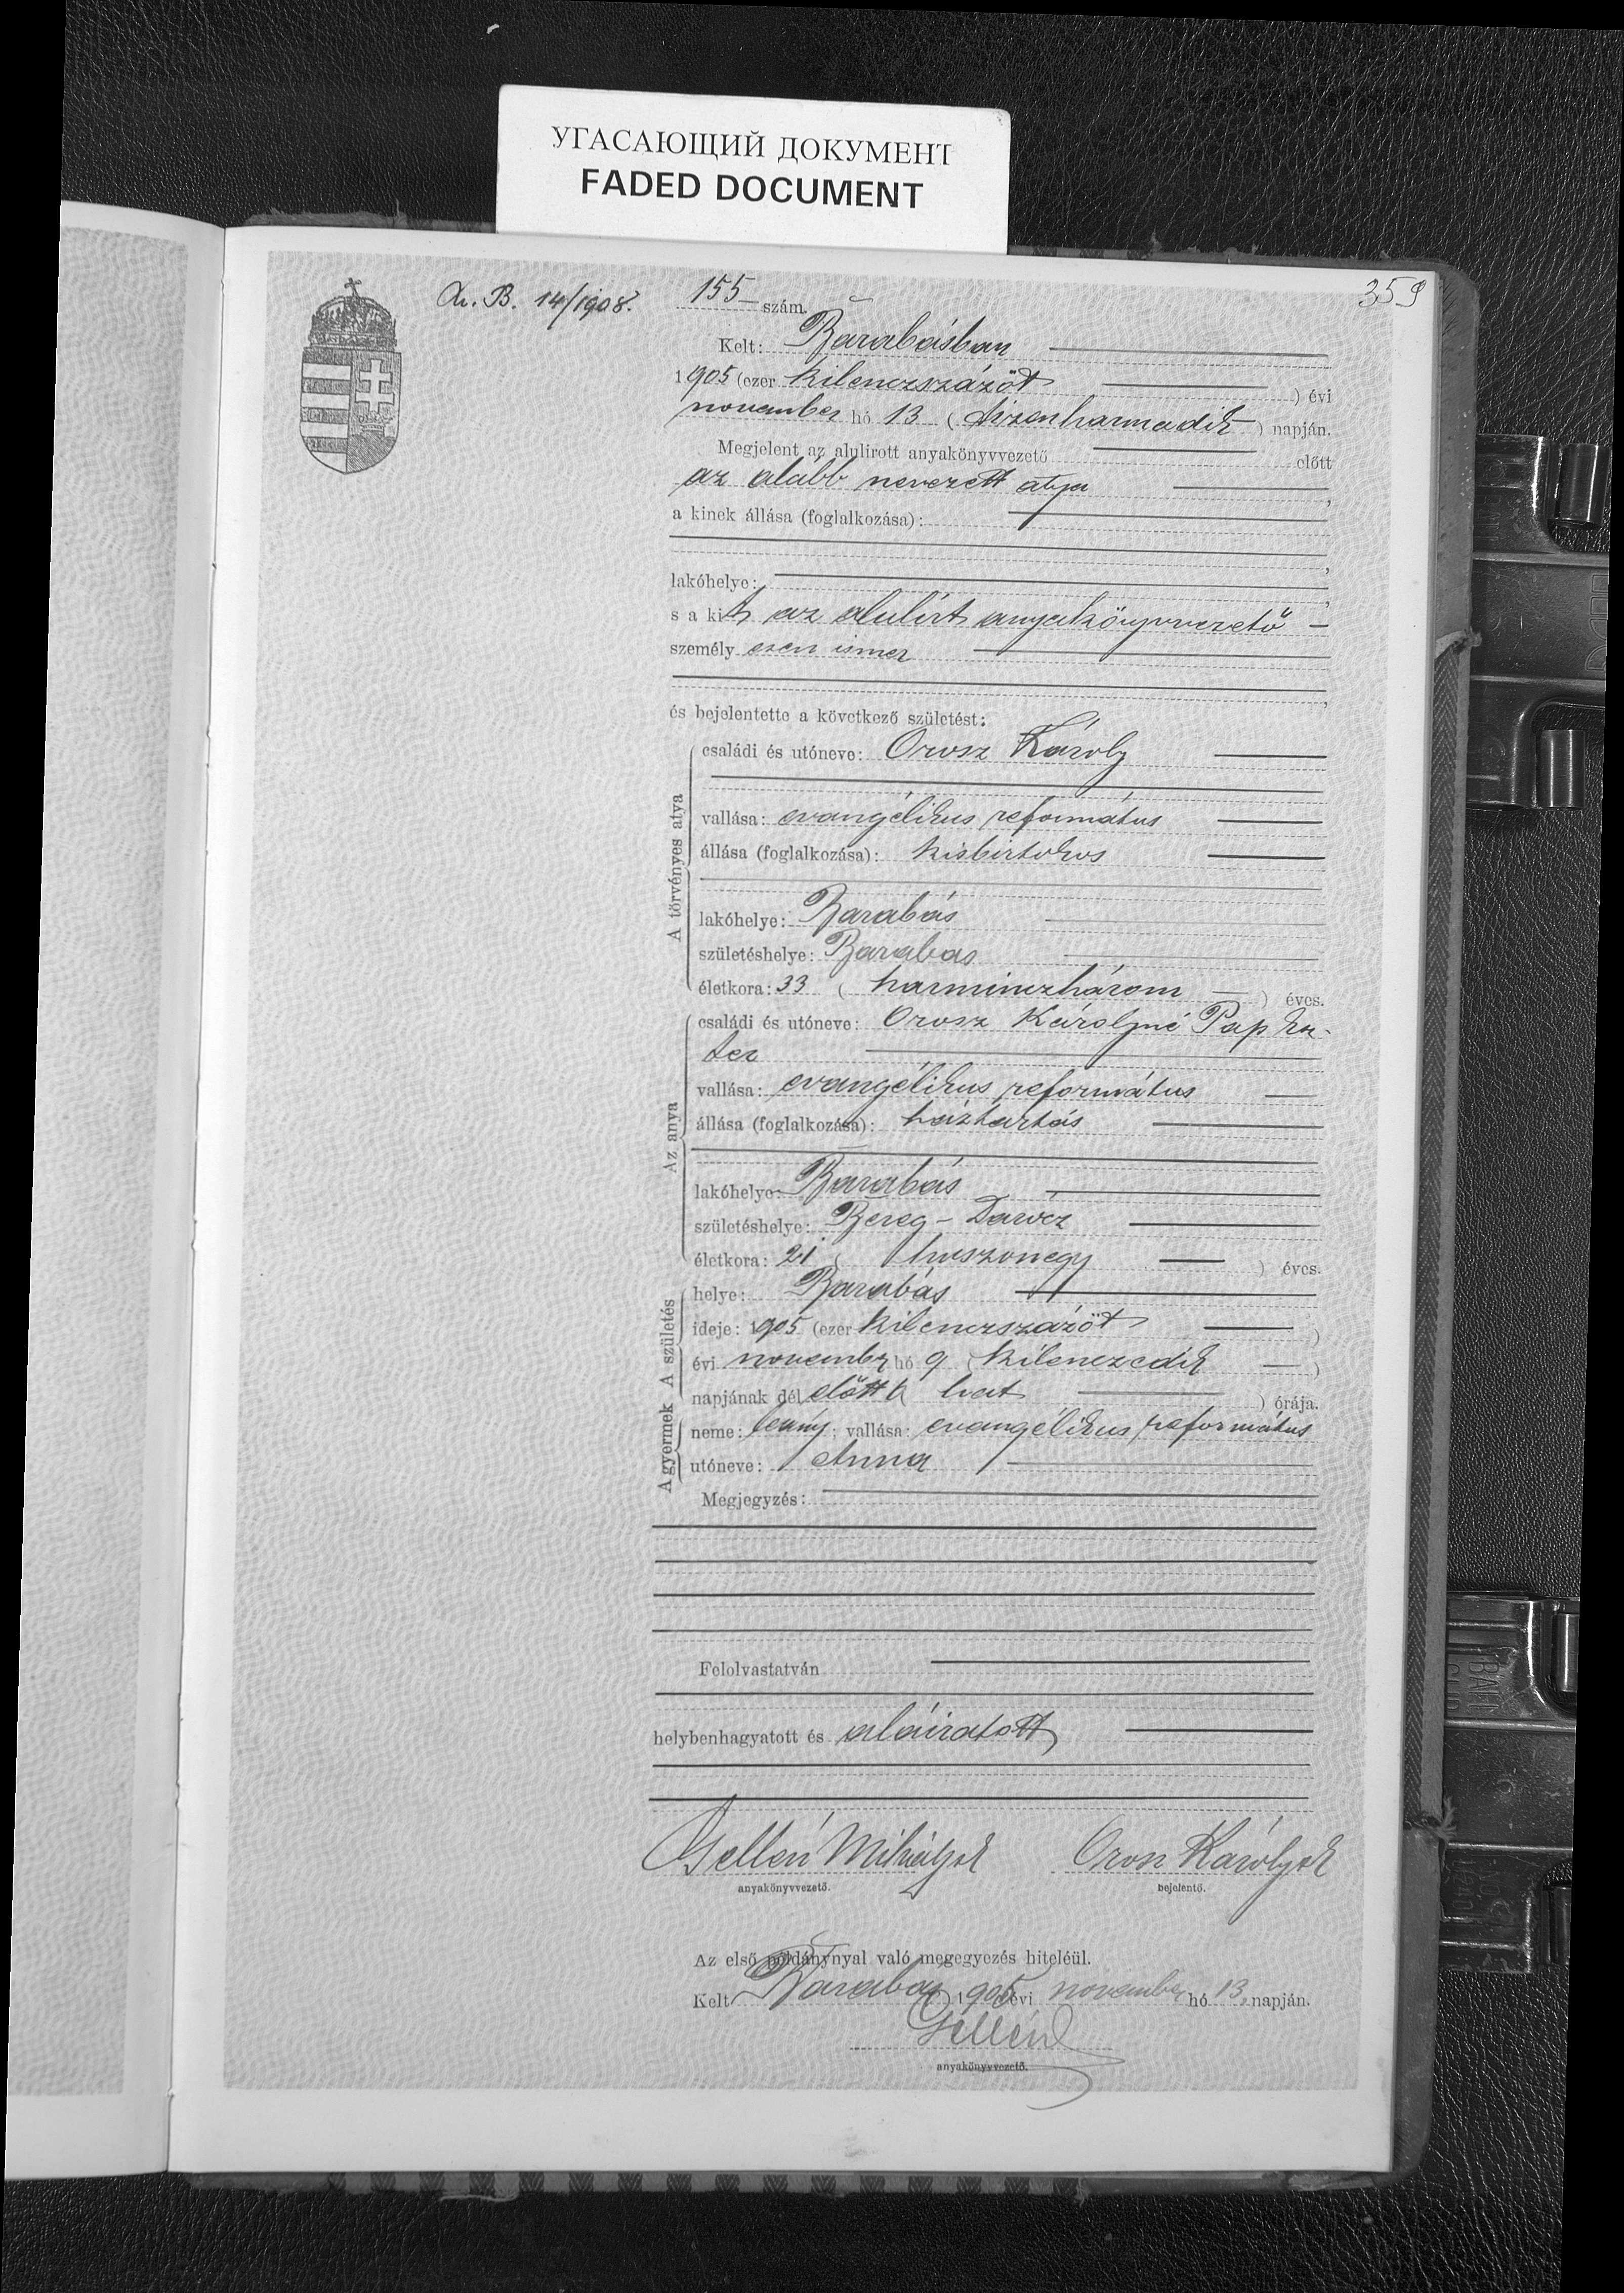 УГАСАЮЩИЙ ДОКУМЕНТ
FADED DOCUMENT
359
B. 14/1908.
155 szám.
Kelt: Barabásban
1905 (ezer kilenczszázöt ) évi
november hó 13 (tizenharmadik ) napján.
Megjelent az alulirott anyakönyvvezető előtt
az alább nevezett atya ,
a kinek állása (foglalkozása):
,
lakóhelye: ,
s a kit az alulírt anyakönyvvezető
személyesen ismer
,
és bejelentette a következő születést:
A törvényes atya
családi és utóneve: Orosz Károly
vallása: evangélikus református
állása (foglalkozása): kisbirtokos
lakóhelye: Barabás
születéshelye: Barabas
életkora: 33 ( harminczhárom ) éves.
Az anya
családi és utóneve: Orosz Károlyné Pap Esz-
ter
vallása: evangélikus református
állása (foglalkozása): háztartás
lakóhelye: Barabás
születéshelye: Bereg-Darócz
életkora: 21 ( huszonegy ) éves.
A születés
helye: Barabás
ideje: 1905 (ezer kilenczszázöt )
évi november hó 9 (kilenczedik )
napjának délelőtt 6 ( hat ) órája.
A gyermek
neme: leány; vallása: evangélikus református
utóneve: Anna
Megjegyzés:
Felolvastatván
helybenhagyatott és aláiratott
Gellén Mihály sk Orosz Károly sk
anyakönyvvezető. bejelentő.
Az első példánynyal való megegyezés hiteléül.
Kelt Barabas 1905 évi november hó 13. napján.
Gellén
anyakönyvvezető.